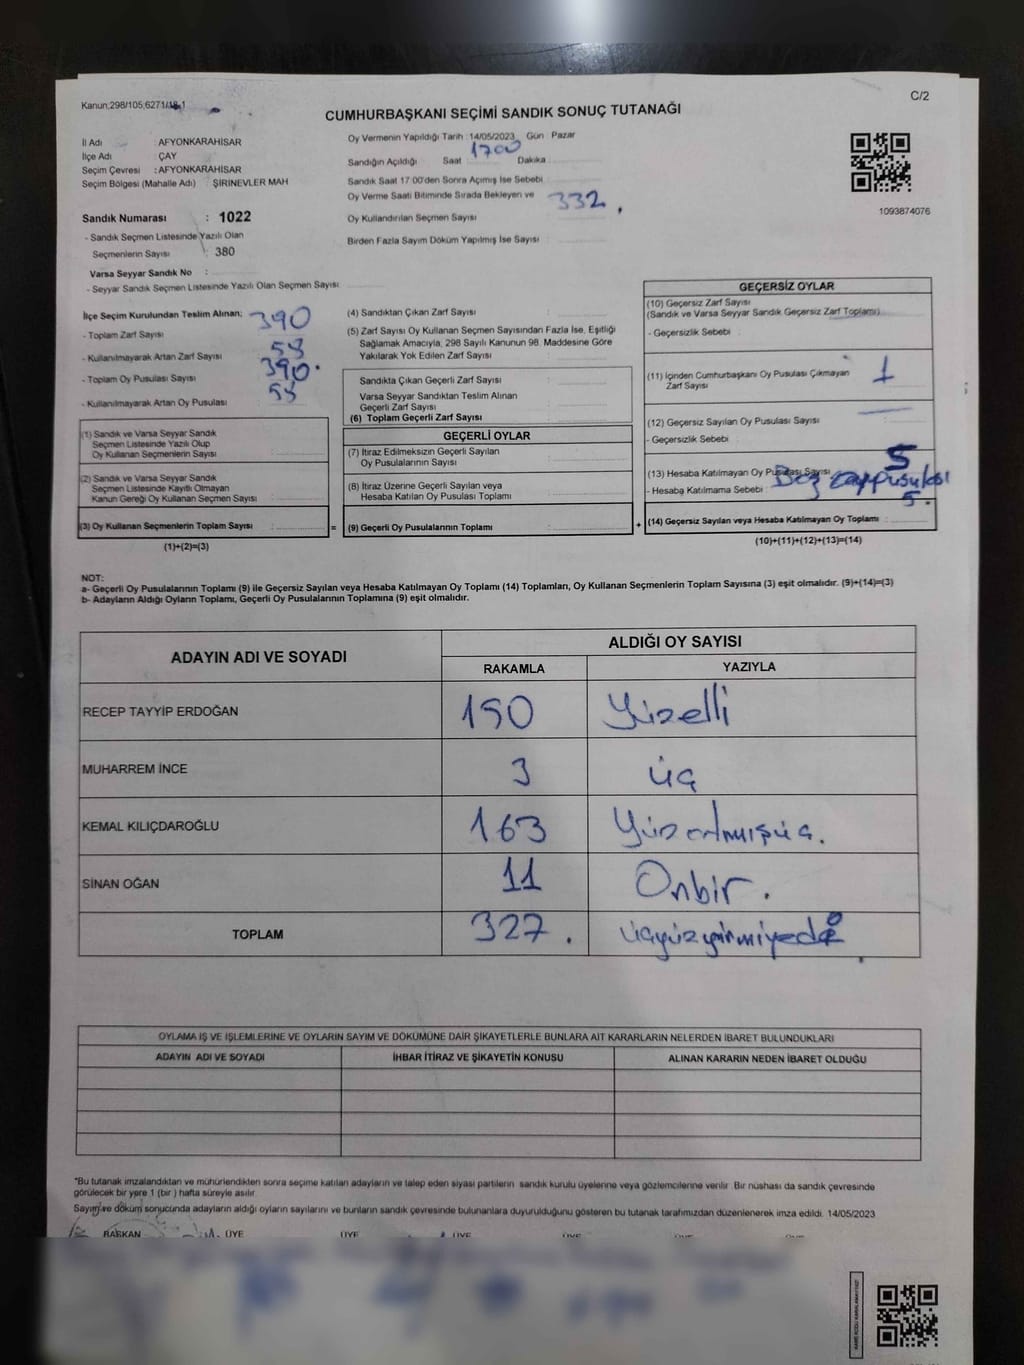 Kanun;298/105;6271/18-1
C/2
CUMHURBAŞKANI SEÇİMİ SANDIK SONUÇ TUTANAĞI
İl Adı : AFYONKARAHİSAR
İlçe Adı : ÇAY
Seçim Çevresi : AFYONKARAHİSAR
Seçim Bölgesi (Mahalle Adı) ŞİRİNEVLER MAH
Sandık Numarası : 1022
- Sandık Seçmen Listesinde Yazılı Olan
Seçmenlerin Sayısı : 380
Varsa Seyyar Sandık No :
- Seyyar Sandık Seçmen Listesinde Yazılı Olan Seçmen Sayısı
Oy Vermenin Yapıldığı Tarih 14/05/2023 Gün Pazar
Sandığın Açıldığı Saat 1700 Dakika
Sandık Saat 17:00'den Sonra Açımış İse Sebebi
Oy Verme Saati Bitiminde Sırada Bekleyen ve 332
Oy Kullandırılan Seçmen Sayısı
Birden Fazla Sayım Döküm Yapılmış İse Sayısı
1093874076
İlçe Seçim Kurulundan Teslim Alınan; 390
- Toplam Zarf Sayısı
- Kullanılmayarak Artan Zarf Sayısı 58
- Toplam Oy Pusulası Sayısı 390.
- Kullanılmayarak Artan Oy Pusulası 58
(1) Sandık ve Varsa Seyyar Sandık
Seçmen Listesinde Yazılı Olup
Oy Kullanan Seçmenlerin Sayısı
(2) Sandık ve Varsa Seyyar Sandık
Seçmen Listesinde Kayıtlı Olmayan
Kanun Gereği Oy Kullanan Seçmen Sayısı
(3) Oy Kullanan Seçmenlerin Toplam Sayısı :
(1)+(2)=(3)
(4) Sandıktan Çıkan Zarf Sayısı
(5) Zarf Sayısı Oy Kullanan Seçmen Sayısından Fazla İse, Eşitliği
Sağlamak Amacıyla, 298 Sayılı Kanunun 98. Maddesine Göre
Yakılarak Yok Edilen Zarf Sayısı
Sandıkta Çıkan Geçerli Zarf Sayısı
Varsa Seyyar Sandıktan Teslim Alınan
Geçerli Zarf Sayısı
(6) Toplam Geçerli Zarf Sayısı
GEÇERLİ OYLAR
(7) İtiraz Edilmeksizin Geçerli Sayılan
Oy Pusulalarının Sayısı
(8) İtiraz Üzerine Geçerli Sayılan veya
Hesaba Katılan Oy Pusulası Toplamı
= (9) Geçerli Oy Pusulalarının Toplamı
GEÇERSİZ OYLAR
(10) Geçersiz Zarf Sayısı
(Sandık ve Varsa Seyyar Sandık Geçersiz Zarf Toplamı)
- Geçersizlik Sebebi
(11) İçinden Cumhurbaşkanı Oy Pusulası Çıkmayan 1
Zarf Sayısı
(12) Geçersiz Sayılan Oy Pusulası Sayısı
- Geçersizlik Sebebi
(13) Hesaba Katılmayan Oy Pusulası Sayısı 5
- Hesaba Katılmama Sebebi
5.
+ (14) Geçersiz Sayılan veya Hesaba Katılmayan Oy Toplamı
(10)+(11)+(12)+(13)=(14)
NOT:
a- Geçerli Oy Pusulalarının Toplamı (9) ile Geçersiz Sayılan veya Hesaba Katılmayan Oy Toplamı (14) Toplamları, Oy Kullanan Seçmenlerin Toplam Sayısına (3) eşit olmalıdır. (9)+(14)=(3)
b- Adayların Aldığı Oyların Toplamı, Geçerli Oy Pusulalarının Toplamına (9) eşit olmalıdır.
ADAYIN ADI VE SOYADI
ALDIĞI OY SAYISI
RAKAMLA YAZIYLA
RECEP TAYYİP ERDOĞAN 150 Yüzelli
MUHARREM İNCE 3 üç
KEMAL KILIÇDAROĞLU 163 Yüzatmışüç.
SİNAN OĞAN 11 Onbir.
TOPLAM 327. üçyüzyirmiyedi
OYLAMA İŞ VE İŞLEMLERİNE VE OYLARIN SAYIM VE DÖKÜMÜNE DAİR ŞİKAYETLERLE BUNLARA AİT KARARLARIN NELERDEN İBARET BULUNDUKLARI
ADAYIN ADI VE SOYADI İHBAR İTİRAZ VE ŞİKAYETİN KONUSU ALINAN KARARIN NEDEN İBARET OLDUĞU
*Bu tutanak imzalandıktan ve mühürlendikten sonra seçime katılan adayların ve talep eden siyasi partilerin sandık kurulu üyelerine veya gözlemcilerine verilir. Bir nüshası da sandık çevresinde
görülecek bir yere 1 (bir) hafta süreyle asılır.
Sayım ve döküm sonucunda adayların aldığı oyların sayılarını ve bunların sandık çevresinde bulunanlara duyurulduğunu gösteren bu tutanak tarafımızdan düzenlenerek imza edildi. 14/05/2023
BAŞKAN ÜYE ÜYE ÜYE ÜYE ÜYE ÜYE